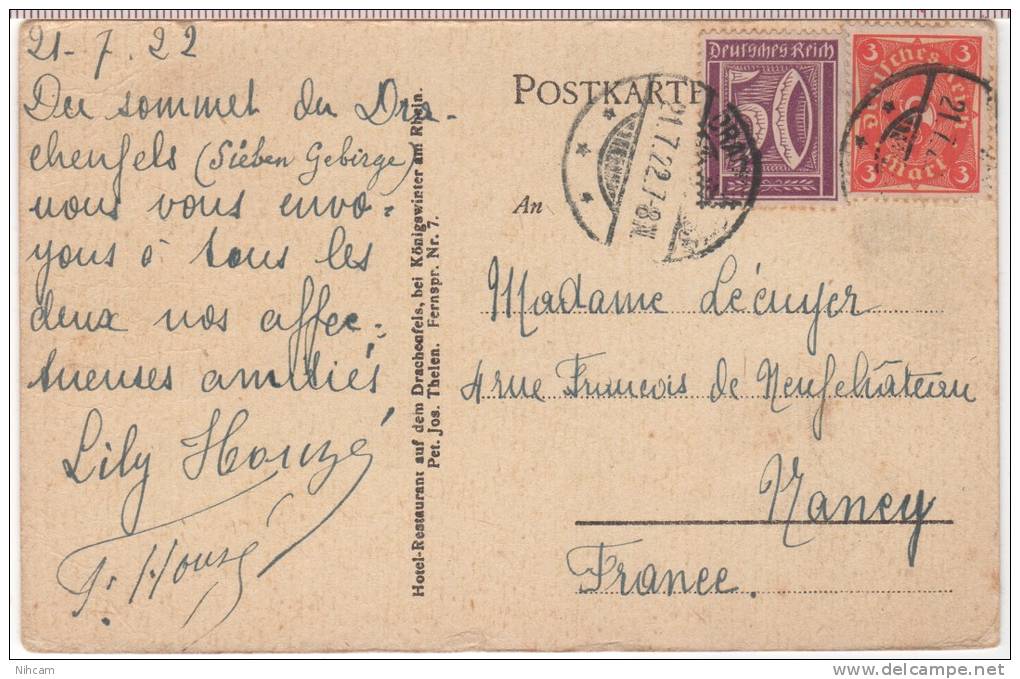 21-7.22
Du sommet du Dra-
chenfels (Sieben Gebirge)
nous vous envo-
yons à tous les
deux nos affec-
tueuses amitiés
Lily Houzé
P. Houzé
Hotel-Restaurant auf dem Drachenfels, bei Königswinter am Rhein.
Pet. Jos. Thelen. Fernspr. Nr. 7.
POSTKARTE
An
Deutsches Reich
50
3 3
Deutsches Reich
3 Mark 3
21.7.22.7-8N
21.7.
Madame Lécuyer
4 rue Francois de Neufchâteau
Nancy
France.
Nihcam
delcampe.net